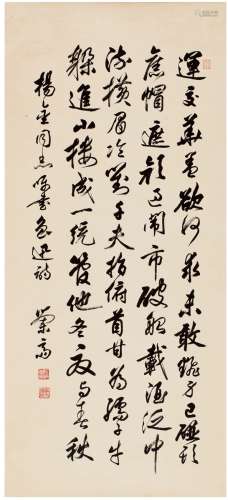 運交華蓋欲何求未敢翻身已碰頭
舊帽遮顏過鬧市破船載酒泛中
流橫眉冷對千夫指俯首甘為孺子牛
躲進小樓成一統管他冬夏與春秋
同志囑書魯迅詩